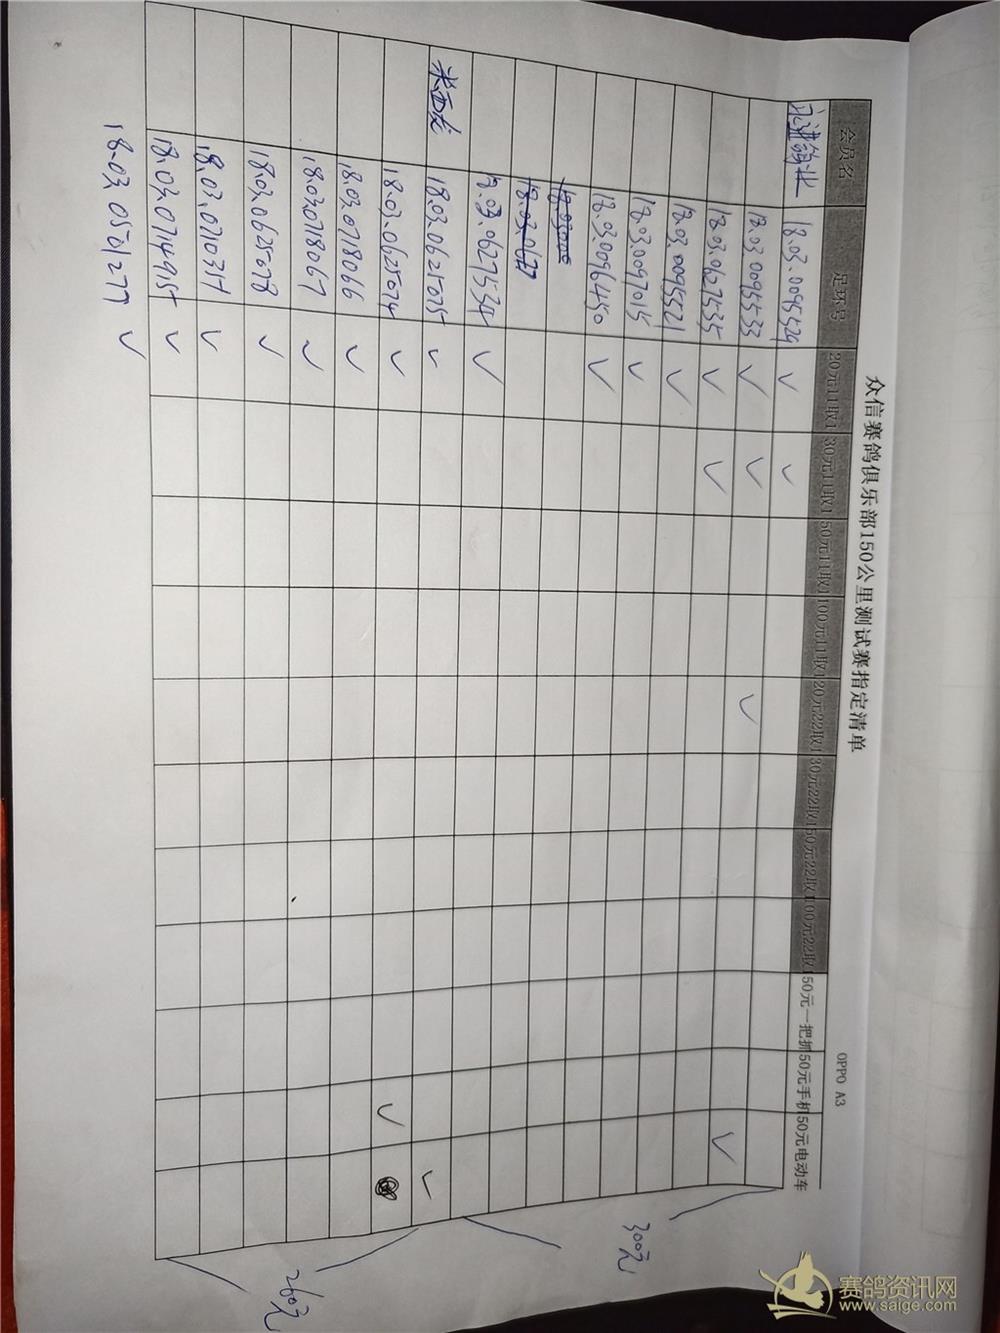 众信赛鸽俱乐部150公里测试赛指定清单
OPPO A3
会员名 足环号 20元11取1 30元11取1 50元11取1 100元11取1 20元22取1 30元22取1 50元22取1 100元22取1 50元一把抓 50元手机 50元电动车
18.03.0095529 ✓ ✓
18.03.0095533 ✓ ✓ ✓
18.03.0627535 ✓ ✓ ✓
18.03.0095521 ✓
18.03.0097015 ✓
18.03.0096450 ✓
18.03.0627534 ✓
18.03.0625075 ✓ ✓
18.03.0625074 ✓ ✓
18.03.0718066 ✓
18.03.0718067 ✓
18.03.0625078 ✓
18.03.0710357 ✓
18.03.0714915 ✓
18.03.0501277 ✓
300元
260元
赛鸽资讯网
www.saige.com